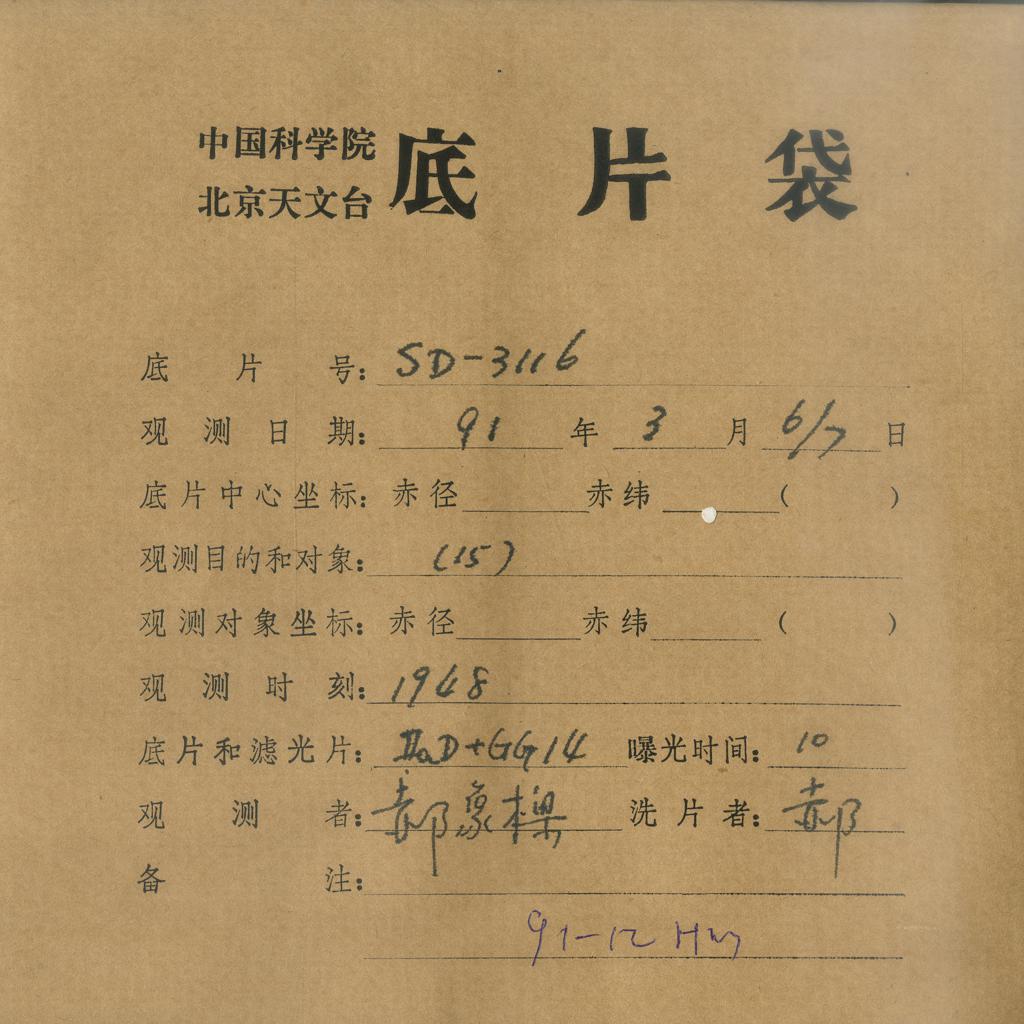 中国科学院
北京天文台
底片袋
底片号：SD-3116
观测日期：91年3月6/7日
底片中心坐标：赤径 赤纬 （ ）
观测目的和对象：(15)
观测对象坐标：赤径 赤纬 （ ）
观测时刻：1948
底片和滤光片：IIaD+GG14 曝光时间：10
观测者：郝象樑 洗片者：郝
备注：
91-12